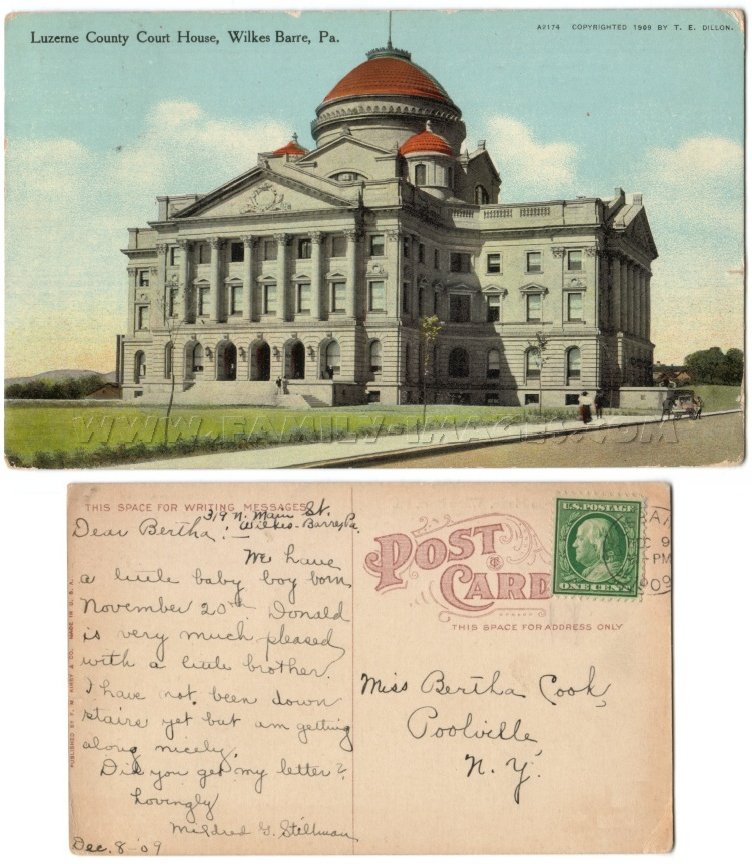 Luzerne County Court House, Wilkes Barre, Pa.
A2174 COPYRIGHTED 1909 BY T. E. DILLON.
WWW.FAMILY-IMAGES.COM
THIS SPACE FOR WRITING MESSAGES
319 N. Main St.
Wilkes-Barre, Pa.
Dear Bertha:—
We have
a little baby boy born
November 20th Donald
is very much pleased
with a little brother.
I have not been down
stairs yet but am getting
along nicely.
Did you get my letter?
Lovingly
Mildred G. Stillman
Dec. 8-09
PUBLISHED BY F. M. KIRBY & CO. MADE IN U.S.A.
POST CARD
THIS SPACE FOR ADDRESS ONLY
U.S. POSTAGE
ONE CENT
DEC 9
PM
1909
Miss Bertha Cook,
Poolville,
N. Y.